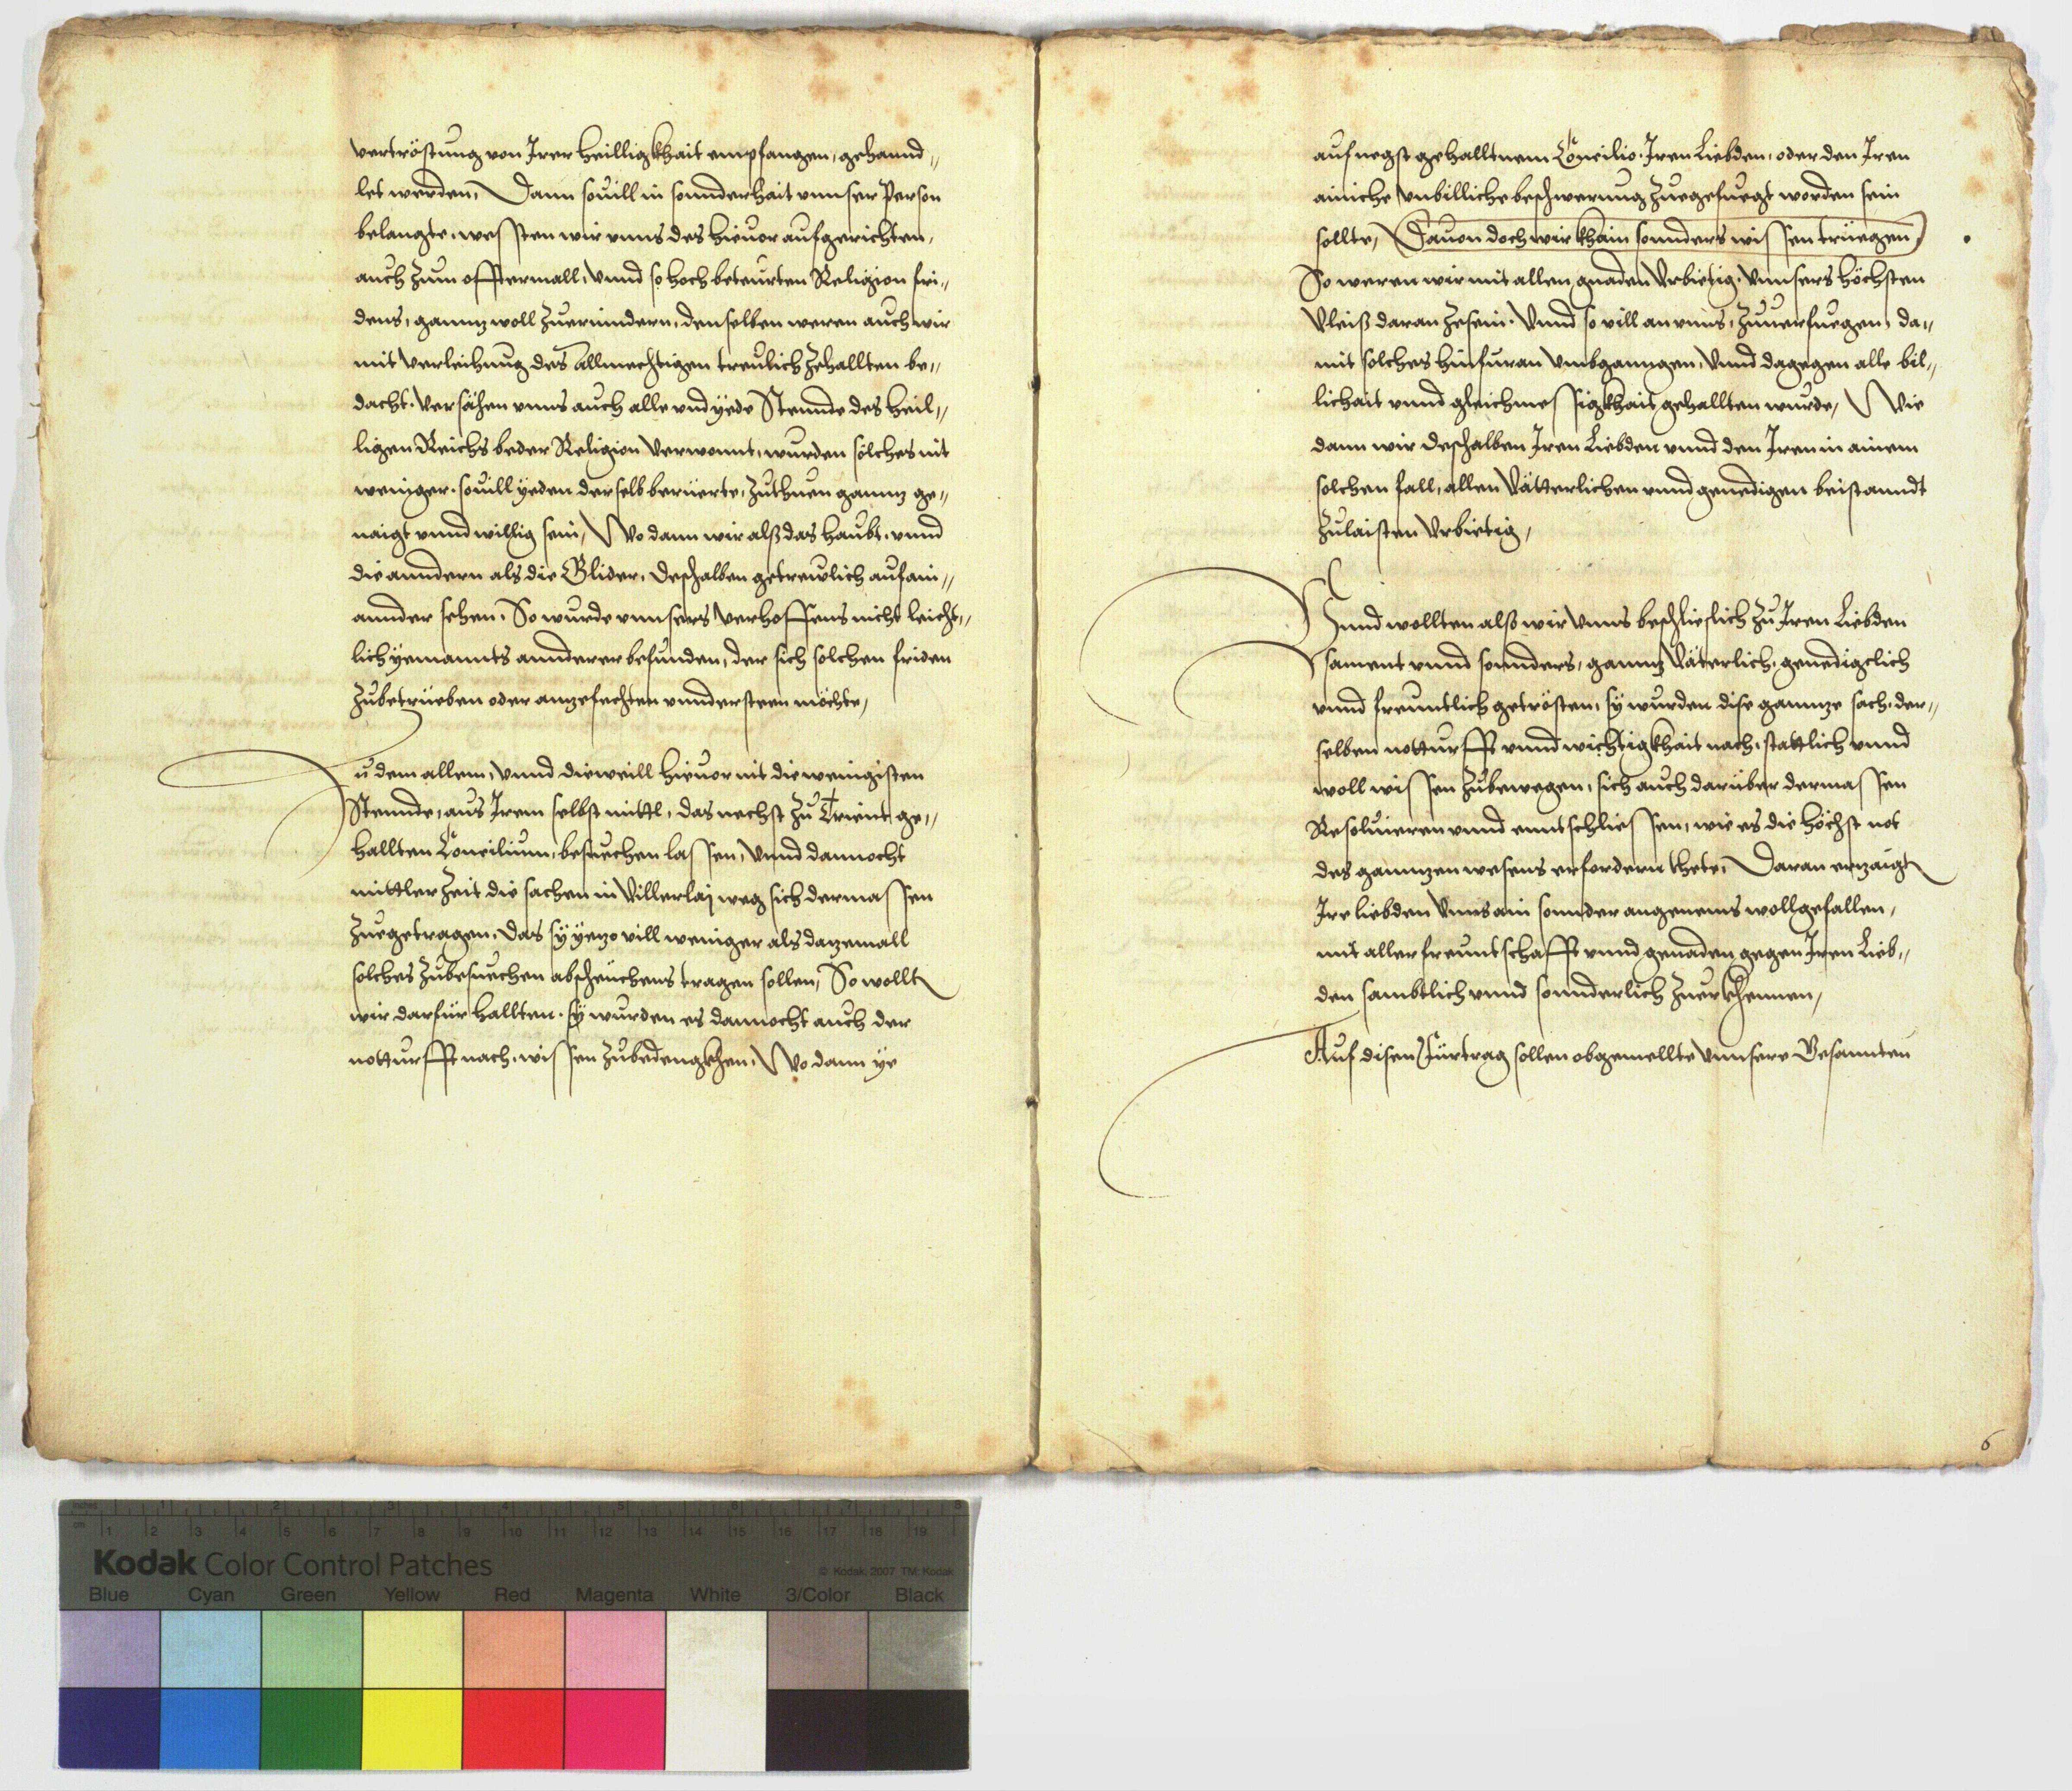 vertröstung von Irer Heilligkhait empfangen, gehannd„
let werden, Dann souill in sonnderhait vnnser Person
belangte, wessten wir vnns des hieuor aufgerichten,
auch zum offtermall, vnnd so hoch beteurten Religion fri„
dens, gannz woll zuerinndern, denselben weren auch wir
mit verleichung des Allmechtigen treulich zehallten be„
dacht, Versähen vnns auch alle vnd yede Stennde des Heil„
ligen Reichs beder Religion verwonnt, wurden solches nit
weniger, souill yeden derselb beruerte, zuthuen gannz ge„
naigt vnnd willig sein, Wo dann wir alß das Haubt, vnnd
die anndern als die Glider, deshalben getrewlich aufain„
annder sehen, So wurde vnnsers verhoffens nicht leicht„
lich yemannts annderer befunden, der sich solchen friden
zubetrüeben oder anzefechten vnndersteen möchte,
Zu dem allem, vnnd dieweill hieuor nit die wenigisten
Stennde, aus Irem selbst mittl, das nechst zu Trient ge„
hallten Concilium, besuechen lassen, vnnd dannocht
mittler Zeit die sachen in Villerlaj weg sich dermassen
zuegetragen, das sy yezo vill weniger als dazemall
solches zubesuechen abscheuchens tragen sollen, So wollt
wir darfür hallten, sy wurden es dannocht auch der
notturfft nach, wissen zubedengkhen, Wo dann ye
auf negst gehalltnem Concilio, Iren Liebden, oder den Iren
ainiche vnbilliche beschwerung zuegefuegt worden sein
sollte, (Dauon doch wir khain sonnders wissen truegen)
So weren wir mit allen gnaden vrbietig, vnnsers höchsten
Vleiß daran zesein, Vnnd so vill an vnns, zuuerfuegen, da„
mit solches hinfuran vmbganngen, vnnd dagegen alle bil„
lichait vnnd gleichmessigkhait gehallten wurde, Wie
dann wir deshalben Iren Liebden vnnd den Iren in ainem
solchen fall, allen Vätterlichen vnnd genedigen beistanndt
zulaisten vrbietig,
Vnnd wollten also wir vnns beschlieslich zu Iren Liebden
sament vnnd sonnders, gannz Väterlich, genedigclich
vnnd freuntlich getrösten, sy wurden dise gannze sach, der„
selben notturfft vnnd wichtigkhait nach, stattlich vnnd
woll wissen zubewegen, sich auch darüber dermassen
Resoluieren vnnd enntschliessen, wie es die höchst not
des gannzen wesens erfordern thete, Daran erzaigt
Ire Liebden vnns ain sonnder angenems wollgefallen,
mit aller freuntschafft vnnd genaden gegen Iren Lieb„
den sambtlich vnnd sonnderlich zuerkhennen,
Auf disen Fürtrag sollen obgemellte vnnsere Gesannten
6
Kodak Color Control Patches
© Kodak, 2007 TM: Kodak
Blue Cyan Green Yellow Red Magenta White 3/Color Black